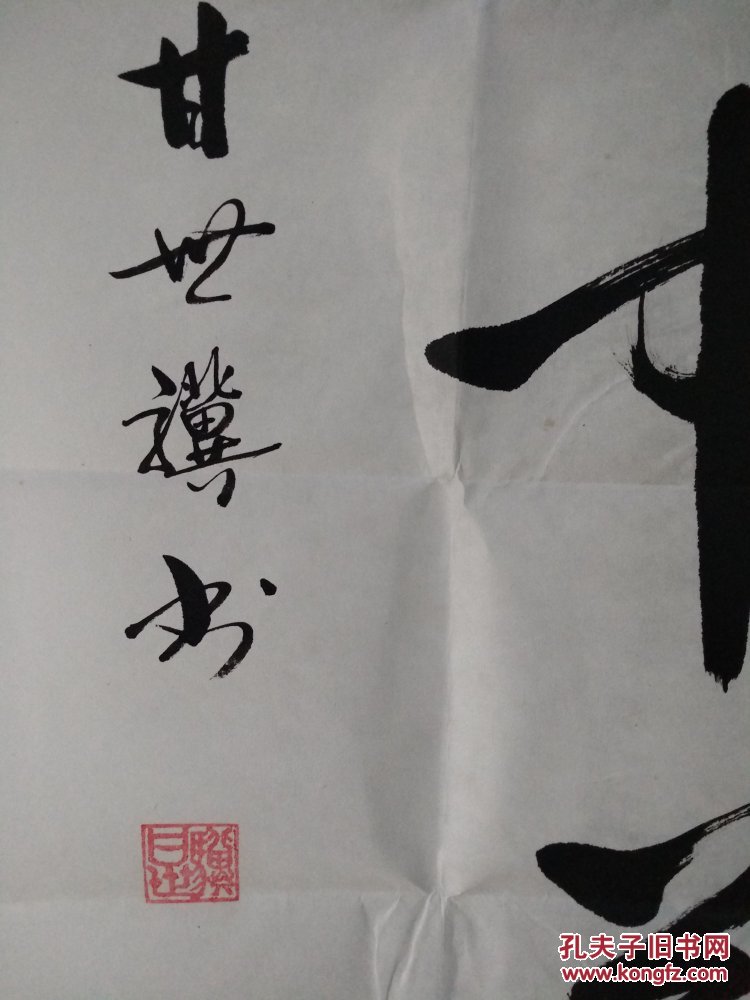 甘世驥书
孔夫子旧书网
www.kongfz.com